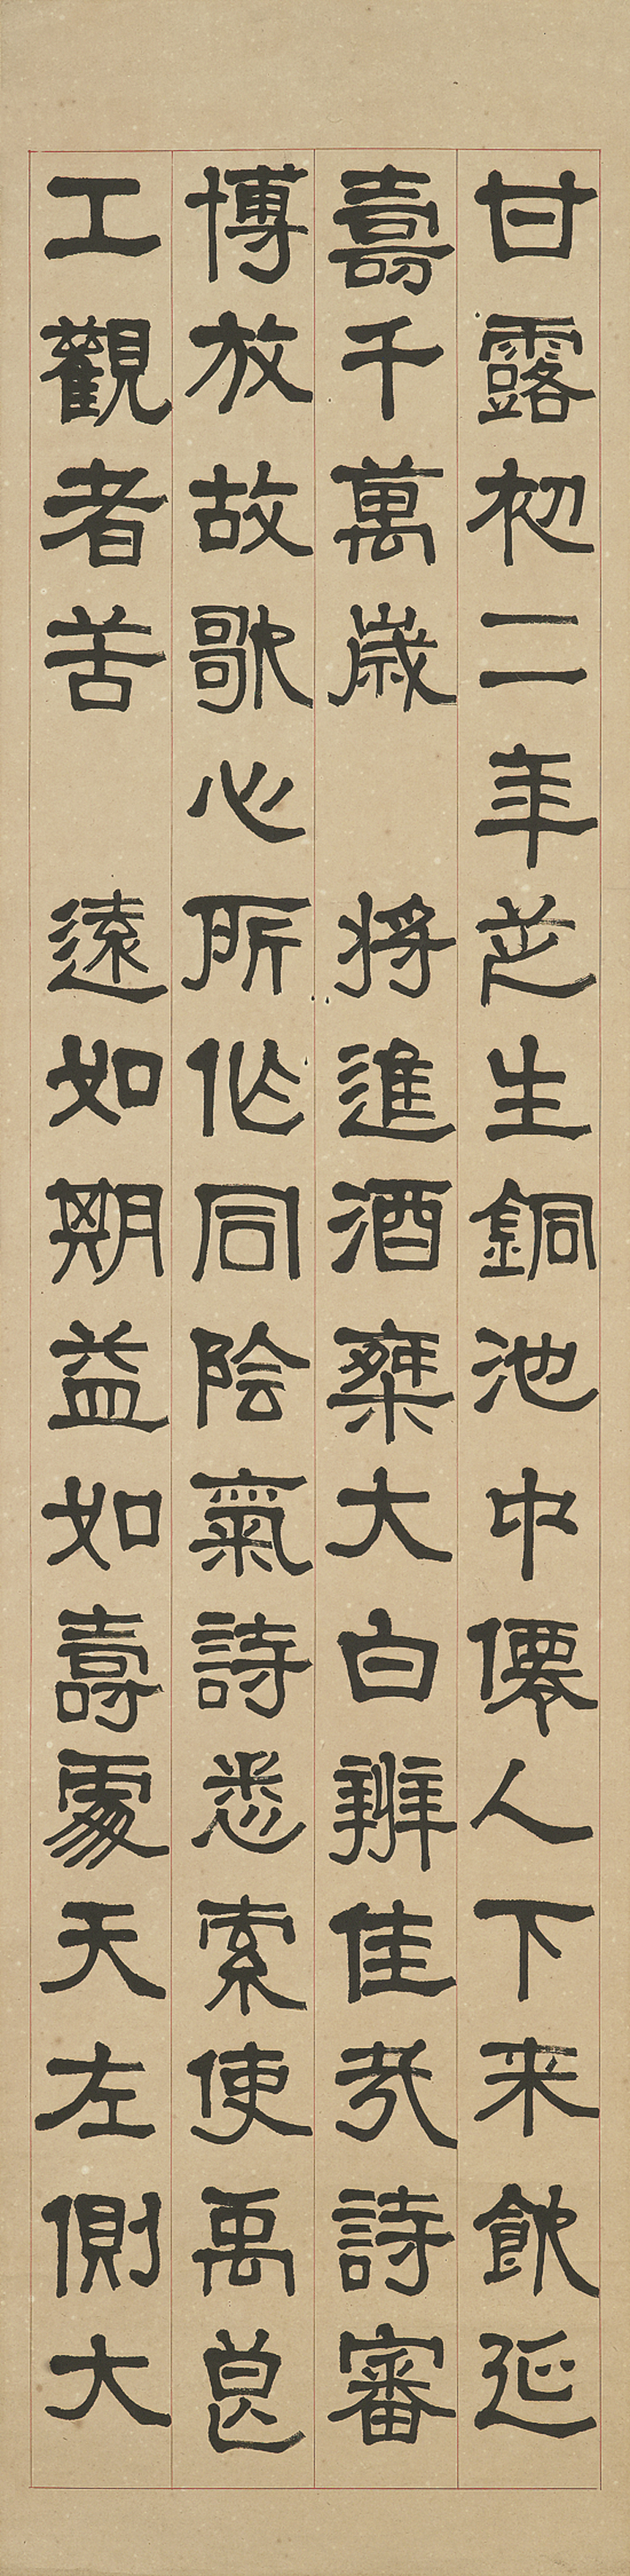 甘露初二年芝生銅池中僊人下来飲延
壽千萬歲 將進酒椉大白辨佳哉詩審
博放故歌心所作同陰氣詩悉索使禹良
工觀者苦 遠如期益如壽處天左側大